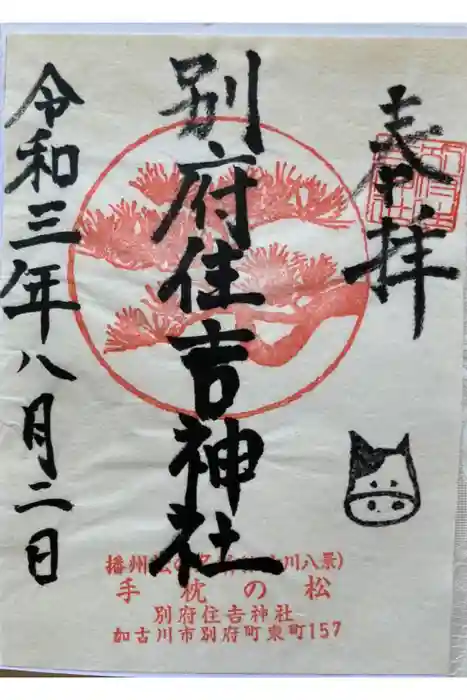 奉拝
別府住吉神社
令和三年八月二日
播州松の名
川八景)
手枕の松
別府住吉神社
加古川市別府町東町157